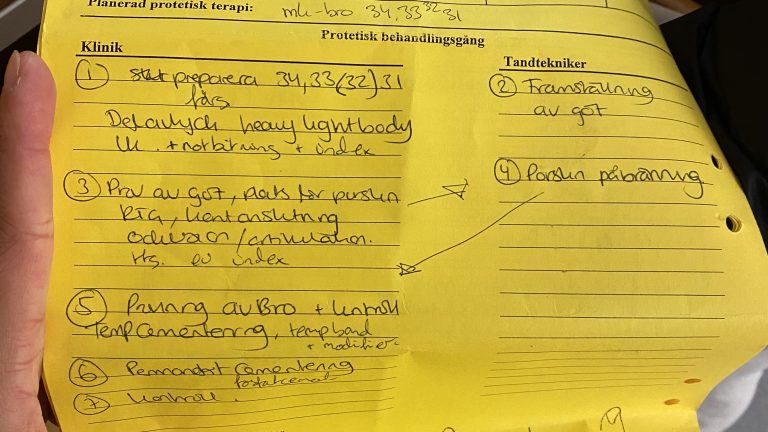 Planerad protetisk terapi: mk-bro 34,33 32 31
Protetisk behandlingsgång
Klinik
Tandtekniker
① preparera 34,33(32)31
färs
Delavtryck heavy lightbody
UK. + motbitning + index
② Framställning
av göt
③ Prov av göt, plats för porslin
RTG, kantanslutning
ocklusion/artikulation.
ev index
④ Porslin påbränning
⑤ Provning av Bro + kontroll
Temp cementering, tempbond
+ modifier
⑥ Permanent cementering
fosfatcement
⑦ kontroll.